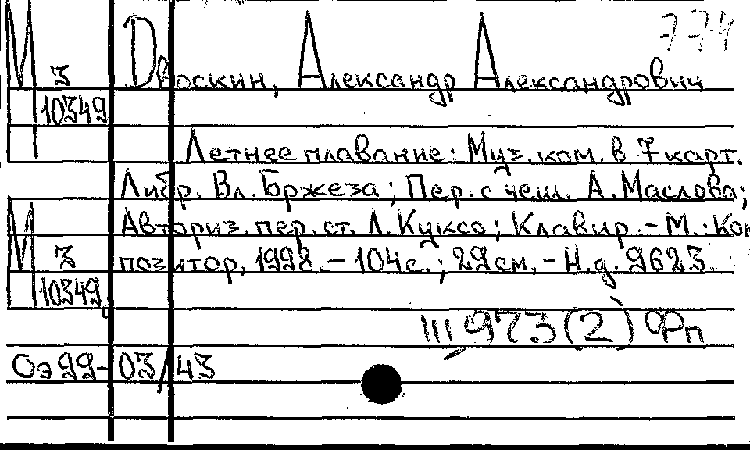 774
М 3
10349
Двоскин, Александр Александрович
Летнее плавание: Муз. ком. в 7 карт.
Либр. Вл. Бржеза; Пер. с чеш. А. Маслова;
Авториз. пер. ст. Л. Куксо; Клавир. - М.: Ком
позитор, 1998. - 104 с.; 29 см. - Н.д. 9623.
М 3
10349
Ш 973(2) Фп
Оэ 99-03/43